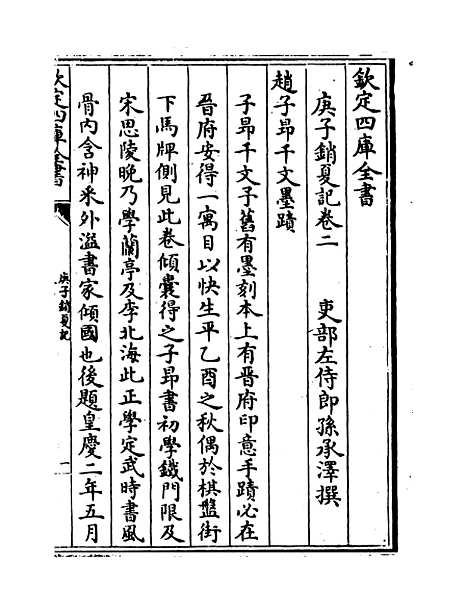 欽定四庫全書
庚子銷夏記卷二　　吏部左侍郎孫承澤撰
趙子昂千文墨蹟
子昂千文予舊有墨刻本上有晉府印意手蹟必在
晉府安得一寓目以快生平乙酉之秋偶於棋盤街
下馬牌側見此卷傾囊得之子昂書初學鐵門限及
宋思陵晚乃學蘭亭及李北海此正學定武時書風
骨内含神采外溢書家傾國也後題皇慶二年五月
欽定四庫全書
庚子銷夏記
一